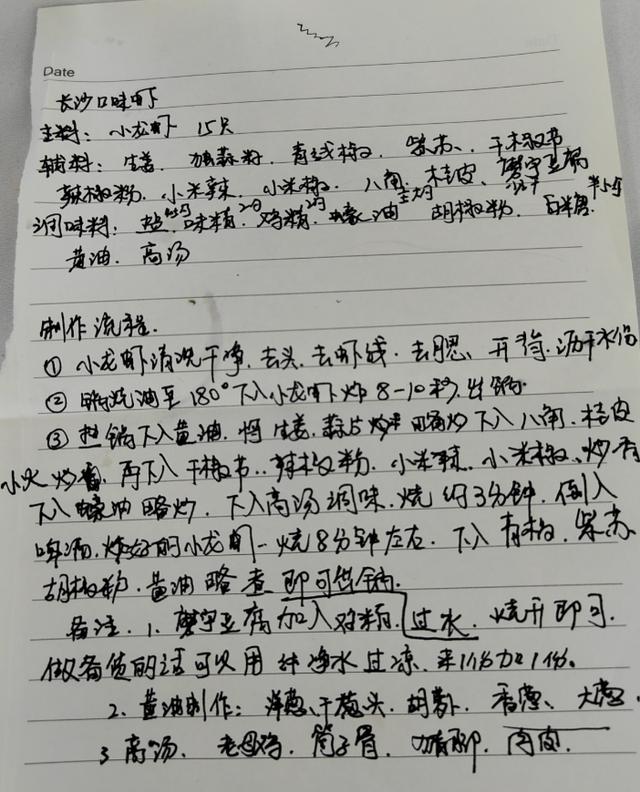 Date
长沙口味虾
主料: 小龙虾 15只
辅料: 生姜. 蒜籽. 青线椒. 紫苏、干椒节
辣椒粉. 小米辣. 小米椒. 八角. 桂皮、魔宇豆腐
调味料: 盐 味精 鸡精 蚝油 胡椒粉. 白糖
黄油. 高汤
制作流程.
① 小龙虾清洗干净. 去头. 去虾线. 去腮、开背. 沥干水份
② 锅烧油至180°下入小龙虾炸8-10秒. 出锅.
③ 热锅下入黄油. 将生姜. 蒜片 略炒下入八角. 桂皮
小火炒香. 再下入干椒节. 辣椒粉. 小米辣. 小米椒、炒香
下入蚝油略炒. 下入高汤调味. 烧约3分钟. 倒入
啤酒. 炸好的小龙虾一烧8分钟左右. 下入青椒. 紫苏
胡椒粉. 黄油略煮即可出锅.
备注. 1. 魔宇豆腐加入鸡精. 过水. 烧开即可.
做备货的话可以用纯净水过凉. 来1份加1份。
2. 黄油制作: 洋葱、干葱头. 胡萝卜. 香葱、大葱.
3 高汤. 老母鸡. 筒子骨. 肉皮.